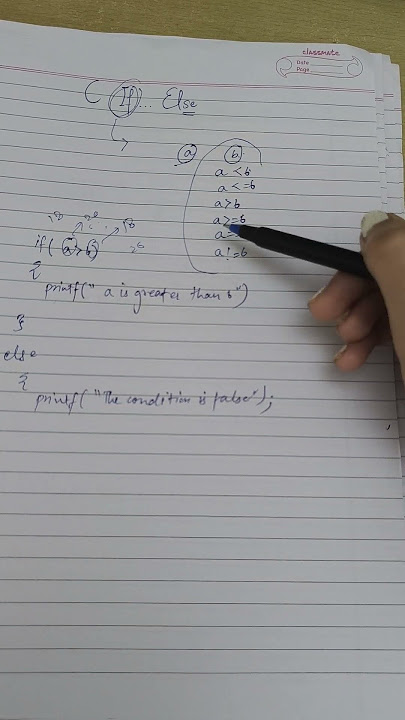 classmate
Date
Page
C If... Else
a b
a < b
a <= b
a > b
a >= b
a =
a != b
if( a > b )
{
printf(" a is greater than b")
}
else
{
printf( "The condition is false");